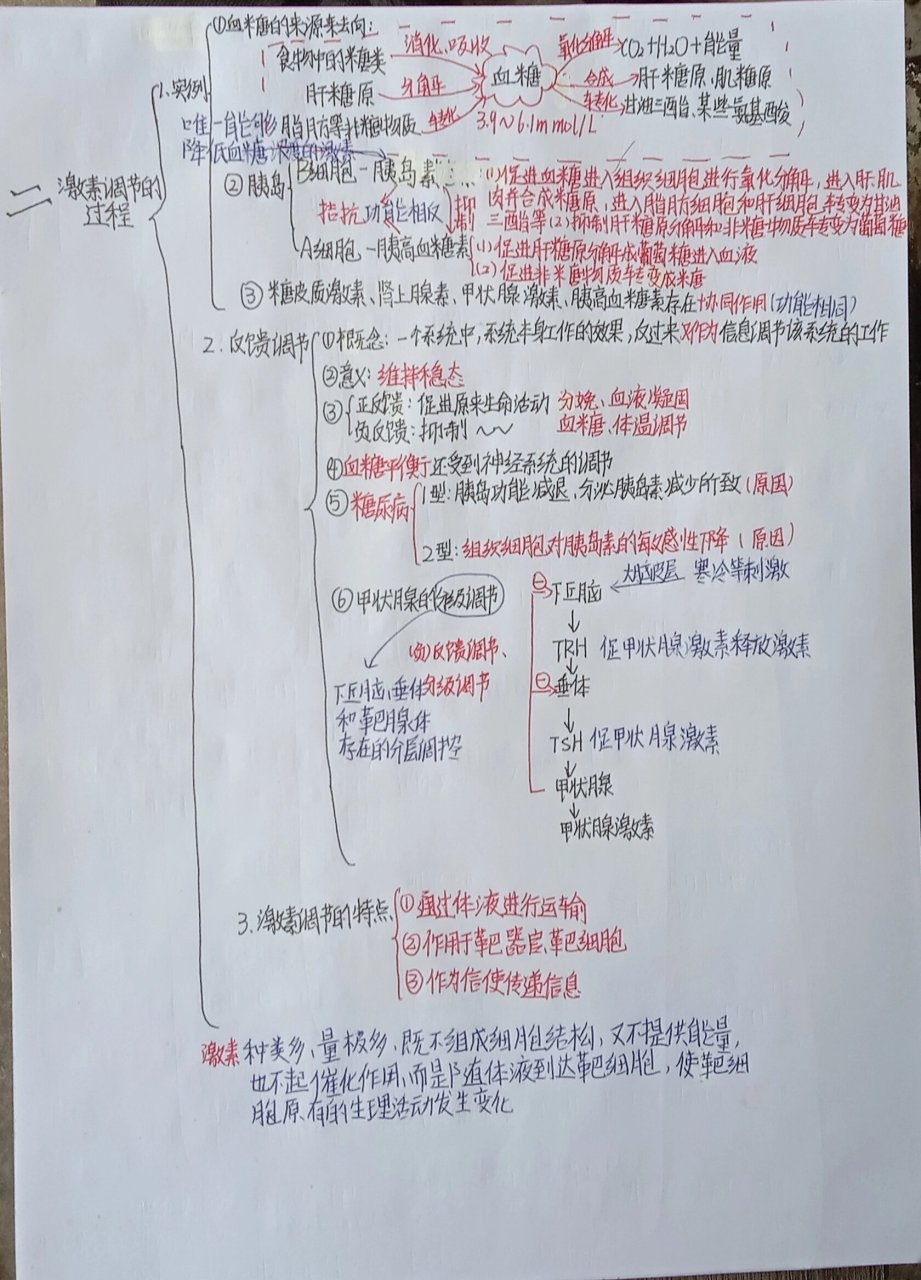 二 激素调节的过程
1. 实例
①血糖的来源和去向:
食物中的糖类 消化、吸收 血糖 氧化分解 CO₂+H₂O+能量
肝糖原 分解 合成 肝糖原、肌糖原
脂肪等非糖物质 转化 3.9~6.1mmol/L 转化 甘油三酯、某些氨基酸
唯一能够降低血糖浓度的激素
②胰岛
B细胞-胰岛素
(1)促进血糖进入组织细胞进行氧化分解,进入肝、肌
肉并合成糖原,进入脂肪细胞和肝细胞转变为甘油
三酯等(2)抑制肝糖原分解和非糖物质转变为葡萄糖
拮抗 功能相反 抑制
A细胞-胰高血糖素
(1)促进肝糖原分解成葡萄糖进入血液
(2)促进非糖物质转变成糖
③糖皮质激素、肾上腺素、甲状腺激素、胰高血糖素存在协同作用(功能相同)
2. 反馈调节
①概念:一个系统中,系统本身工作的效果,反过来又作为信息调节该系统的工作
②意义:维持稳态
③正反馈:促进原来生命活动 分娩、血液凝固
负反馈:抑制~~ 血糖、体温调节
④血糖平衡还受到神经系统的调节
⑤糖尿病
1型:胰岛功能减退,分泌胰岛素减少所致(原因)
2型:组织细胞对胰岛素的敏感性下降(原因)
⑥甲状腺的分级调节
(负)反馈调节、
分级调节
下丘脑、垂体
和靶腺体
存在的分层调控
⊖ 下丘脑 大脑皮层 寒冷等刺激
TRH 促甲状腺激素释放激素
⊖ 垂体
TSH 促甲状腺激素
甲状腺
甲状腺激素
3. 激素调节的特点
①通过体液进行运输
②作用于靶器官、靶细胞
③作为信使传递信息
激素种类多、量极多、既不组成细胞结构,又不提供能量,
也不起催化作用,而是随体液到达靶细胞,使靶细
胞原有的生理活动发生变化